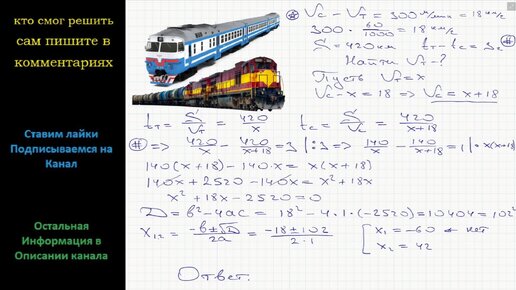 кто смог решить
сам пишите в
комментариях
Ставим лайки
Подписываемся на
Канал
Остальная
Информация в
Описании канала
# Vc − Vт = 300 м/мин = 18 км/ч
300 · 60/1000 = 18 км/ч
S = 420 км tт − tc = 3ч #
Найти Vт − ?
Пусть Vт = x
Vc − x = 18 ⇒ Vc = x + 18
tт = S/Vт = 420/x tc = S/Vc = 420/(x+18)
# ⇒ 420/x − 420/(x+18) = 3 | :3 ⇒ 140/x − 140/(x+18) = 1 | · x(x+18)
140(x+18) − 140·x = x(x+18)
140x + 2520 − 140x = x² + 18x
x² + 18x − 2520 = 0
D = b² − 4ac = 18² − 4·1·(−2520) = 10404 = 102²
x₁,₂ = (−b ± √D)/2a = (−18 ± 102)/(2·1) [ x₁ = −60 ← нет
x₂ = 42
Ответ: